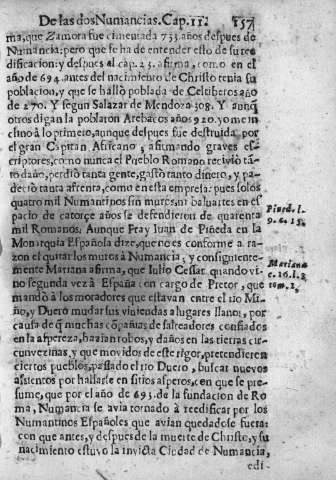 De las dos Numancias. Cap. 11. 157
ma, que Zamora fue cimentada 733. años despues de
Numancia: pero que se ha de entender esto de su ree
dificacion: y despues al cap. 23. afirma, como en el
año de 694. antes del nacimiento de Christo tenia su
poblacion, y que se hallò poblada de Celtiberos año
de 270. Y segun Salazar de Mendoza 308. Y aunq̃
otros digan la poblaron Arebacos años 920. yo me in
clino à lo primero, aunque despues fue destruida por
el gran Capitan Africano, afirmando graves es-
criptores, como nunca el Pueblo Romano recivio tã
to daño, perdio tanta gente, gastò tanto dinero, y pa-
decio tanta afrenta, como en esta empresa: pues solos
quatro mil Numantinos sin muros, ni baluartes en es
pacio de catorçe años se defendieron de quarenta
mil Romanos. Aunque Fray Iuan de Piñeda en la
Monarquia Española dize, que no es conforme a ra-
zon el quitar los muros à Numancia; y consiguiente-
mente Mariana afirma, que Iulio Cesar quando vi-
no segunda vez à España con cargo de Pretor, que
mandò à los moradores que estavan entre el rio Mi-
ño, y Duero mudar sus viviendas a lugares llanos, por
causa de q̃ muchas copañias de salteadores confiados
en la aspereza, hazian robos, y daños en las tierras cir-
cunvezinas, y que movidos de este rigor, pretendieren
ciertos pueblos, passado el rio Duero, buscar nuevos
assientos por hallarse en sitios asperos, con que se pre-
sume, que por el año de 693. de la fundacion de Ro
ma, Numancia se avia tornado à reedificar por los
Numantinos Españoles que avian quedado fuera:
con que antes, y despues de la muerte de Christo, y su
nacimiento estuvo la invicta Ciudad de Numancia,
edi-
Pined. l.
9. c. 15.
Mariana
c. 16. l. 3
tom. 1.